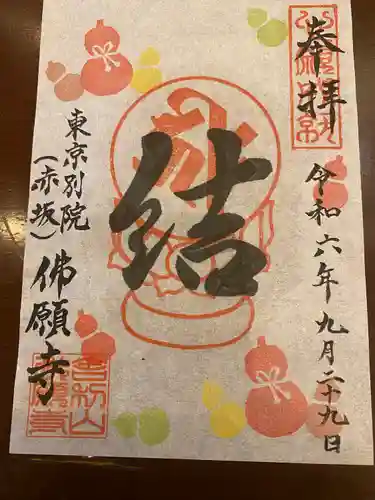 奉拝
令和六年九月二十九日
結
東京別院
(赤坂)
佛願寺